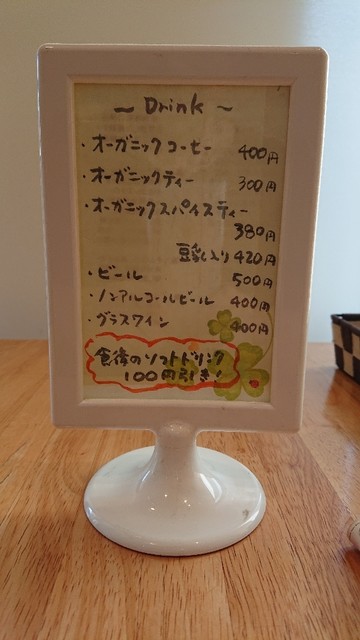 ~ Drink ~
・オーガニックコーヒー 400円
・オーガニックティー 300円
・オーガニックスパイスティー
380円
豆乳入り 420円
・ビール 500円
・ノンアルコールビール 400円
・グラスワイン 400円
食後のソフトドリンク
100円引き!